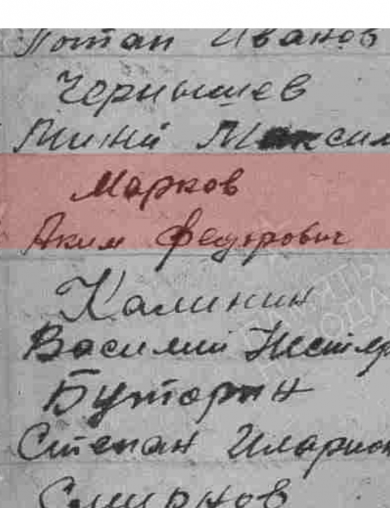 Потап Иванов
Чернышев
Марков
Аким Федорович
Калинин
Василий Нестер
Буторин
Степан Иларион
Смирнов
ПАМЯТЬ
НАРОДА